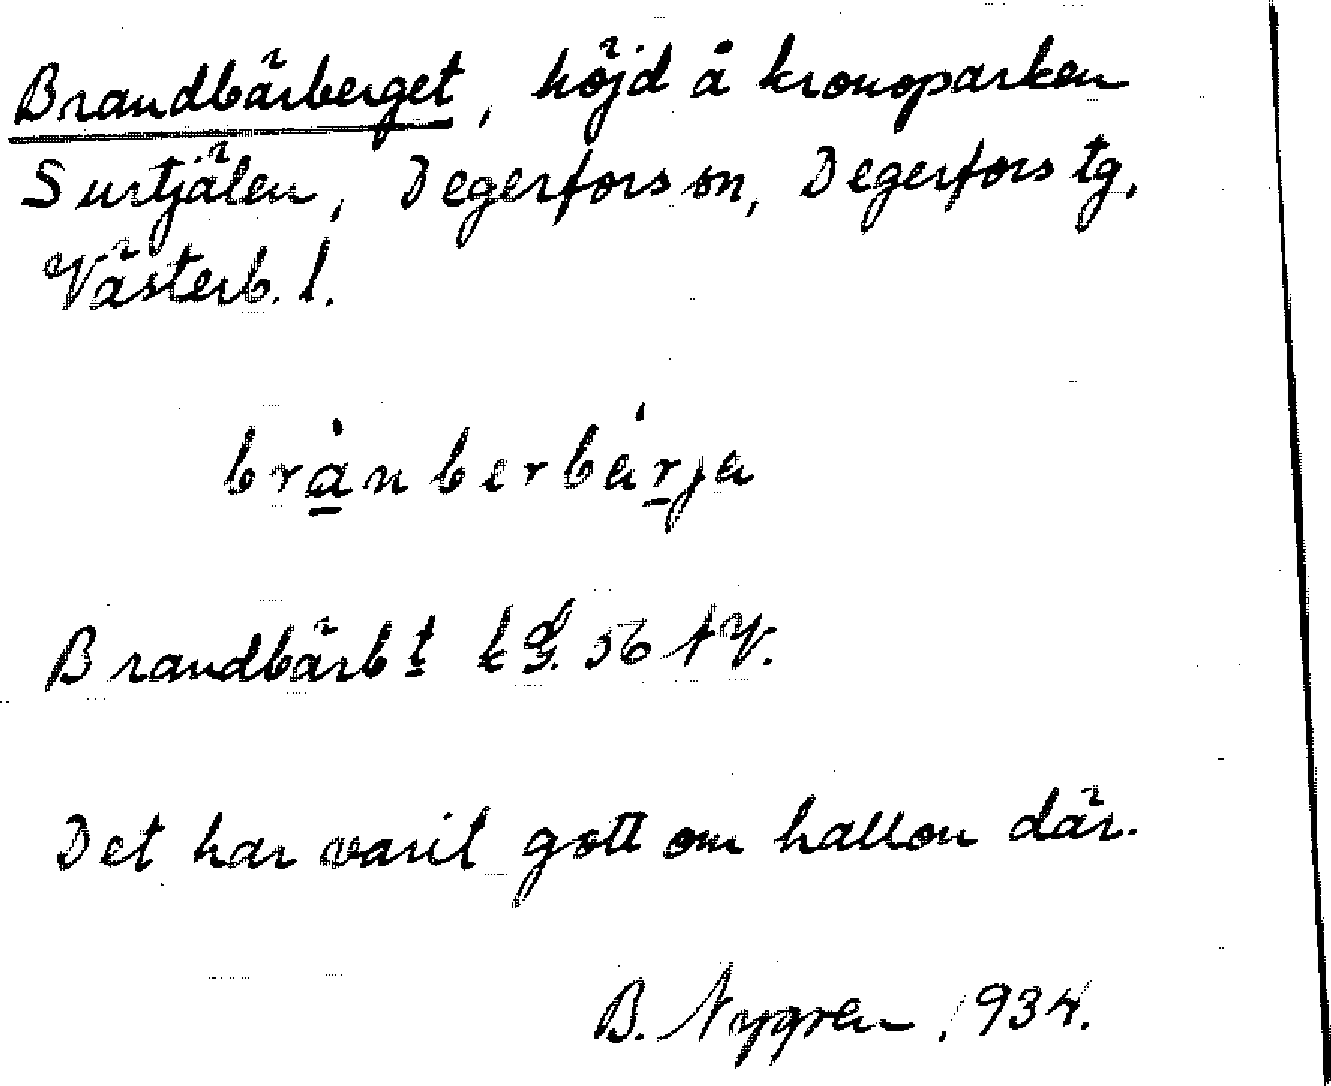 Brandbärberget, höjd å kronoparken
Surtjälen, Degerfors sn, Degerfors tg,
Västerb. l.
brånberbärja
Brandbärbt 56 NV.
Det har varit gott om hallon där.
B. Nygren, 1934.